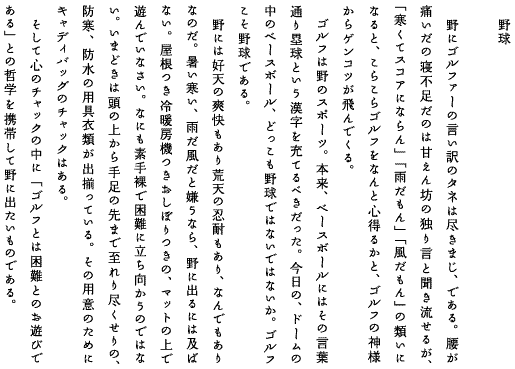 野球
野にゴルファーの言い訳のタネは尽きまじ、である。腰が
痛いだの寝不足だのは甘えん坊の独り言と聞き流せるが、
「寒くてスコアにならん」「雨だもん」「風だもん」の類いに
なると、こらこらゴルフをなんと心得るかと、ゴルフの神様
からゲンコツが飛んでくる。
ゴルフは野のスポーツ。本来、ベースボールにはその言葉
通り塁球という漢字を充てるべきだった。今日の、ドームの
中のベースボール、どっこも野球ではないではないか。ゴルフ
こそ野球である。
野には好天の爽快もあり荒天の忍耐もあり、なんでもあり
なのだ。暑い寒い、雨だ風だと嫌うなら、野に出るには及ば
ない。屋根つき冷暖房機つきおしぼりつきの、マットの上で
遊んでいなさい。なにも素手裸で困難に立ち向かうのではな
い。いまどきは頭の上から手足の先まで至れり尽くせりの、
防寒、防水の用具衣類が出揃っている。その用意のために
キャディバッグのチャックはある。
そして心のチャックの中に「ゴルフとは困難とのお遊びで
ある」との哲学を携帯して野に出たいものである。